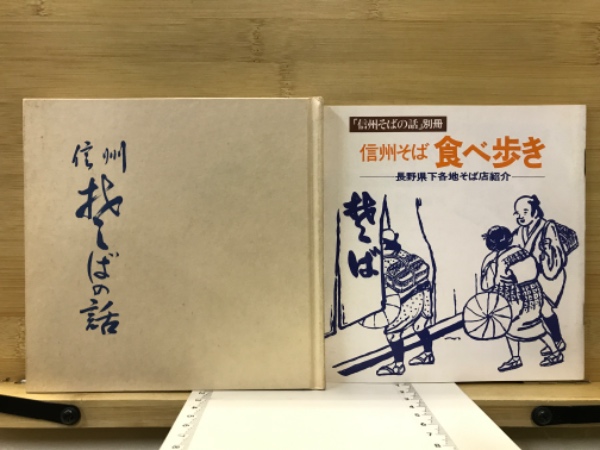 信州
そばの話
「信州そばの話」別冊
信州そば 食べ歩き
長野県下各地そば店紹介
そば